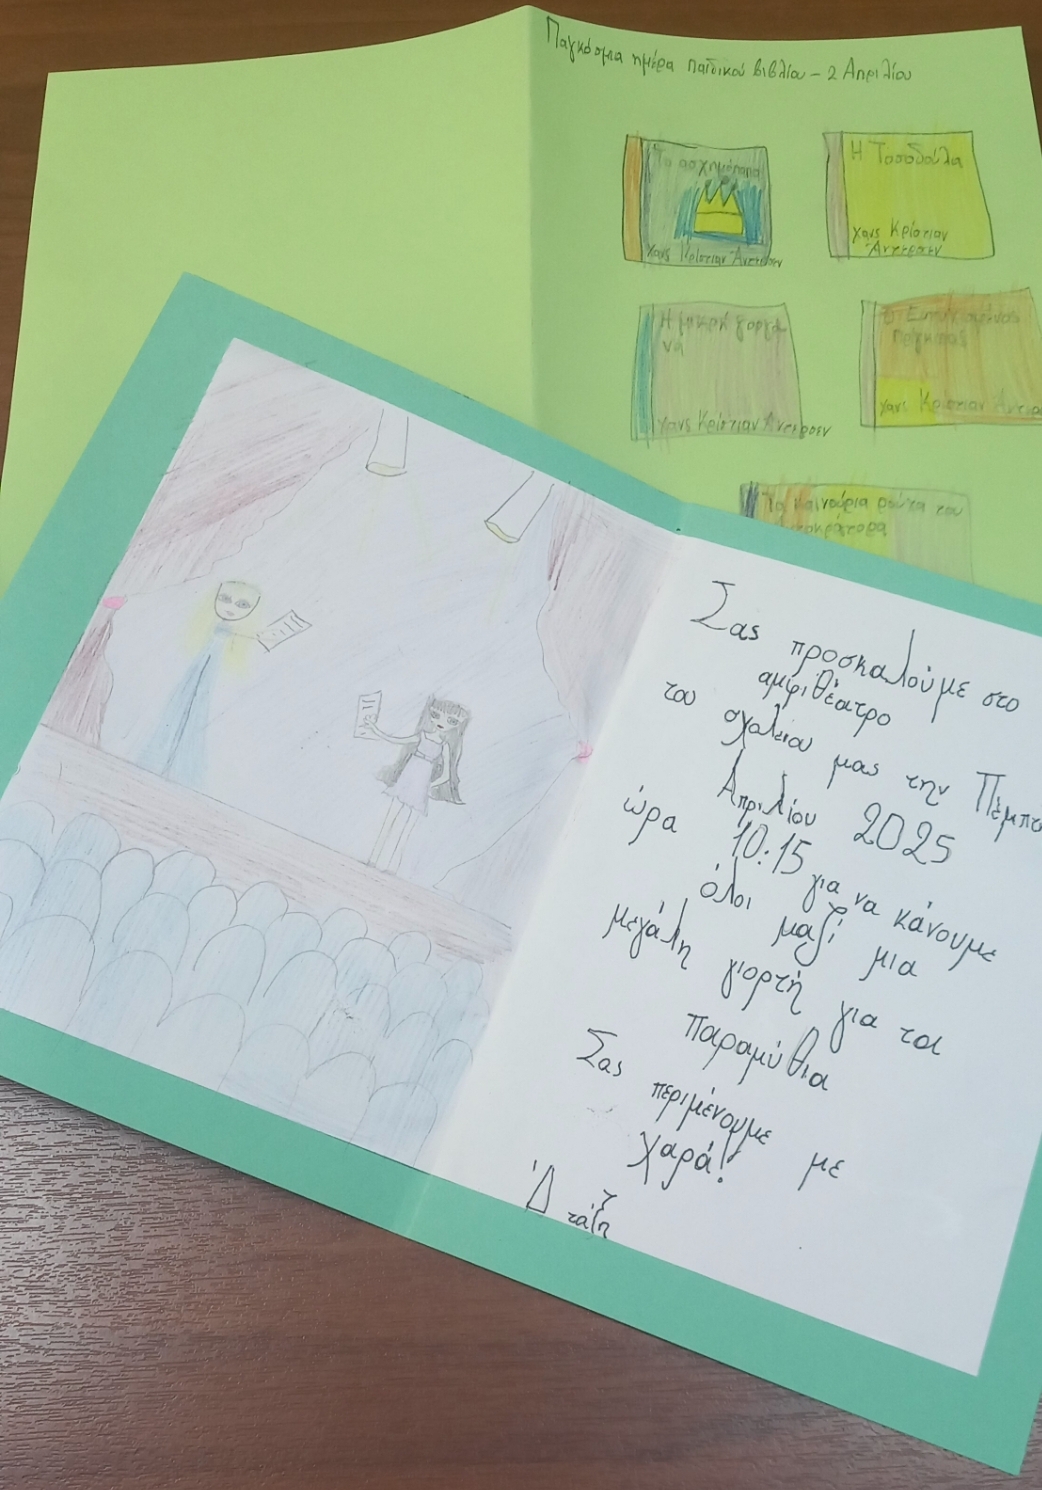 Παγκόσμια ημέρα παιδικού βιβλίου - 2 Απριλίου
Το ασχημόπαπο
Χανς Κρίστιαν Άντερσεν
Η Τοσοδούλα
Χανς Κρίστιαν
Άντερσεν
Η μικρή γοργό
να
Χανς Κρίστιαν Άντερσεν
Πρίγκιπας
Χανς Κρίστιαν
Τα καινούρια ρούχα του
Σας προσκαλούμε στο
αμφιθέατρο
του σχολείου μας την Πέμπτ
Απριλίου 2025
ώρα 10:15 για να κάνουμε
όλοι μαζί μια
μεγάλη γιορτή για τα
παραμύθια
Σας περιμένουμε με
χαρά!
'Δ τάξη